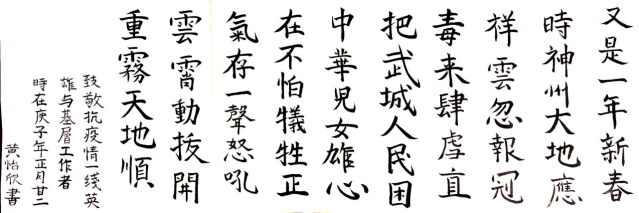 又是一年新春
時神州大地應
祥雲忽報冠
毒来肆虐直
把武城人民困
中華兒女雄心
在不怕犠牲正
氣存一聲怒吼
雲霄動拨開
重霧天地順
致敬抗疫情一线英
雄与基层工作者
時在庚子年正月廿二
黄怡欣書